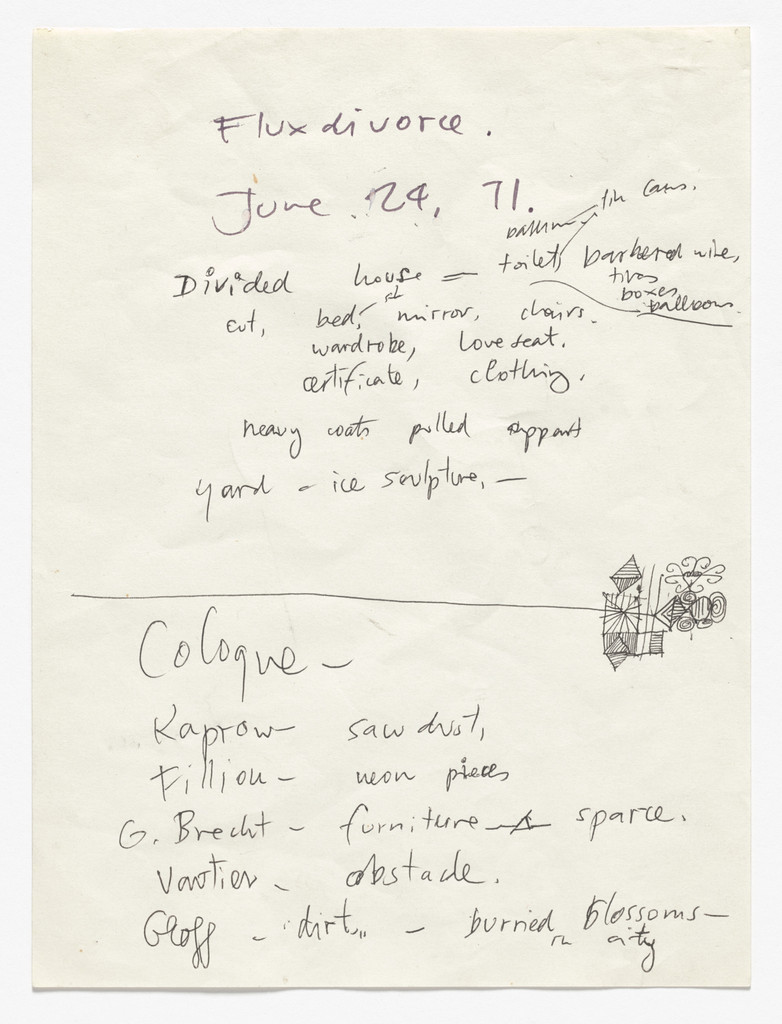 Fluxdivorce.
June 24, 71.
balloon tin cans.
Divided house = toilet, barbered wire,
tires
boxes
balloons.
cut, bed, mirror, chairs.
wardrobe, love seat.
certificate, clothing,
heavy coats pulled appart
yard - ice sculpture, -
Cologne -
Kaprow - sawdust,
Fillion - neon pieces
G. Brecht - furniture - sparce.
Vautier - obstacle.
Geoff - "dirt" - burried blossoms -
in city